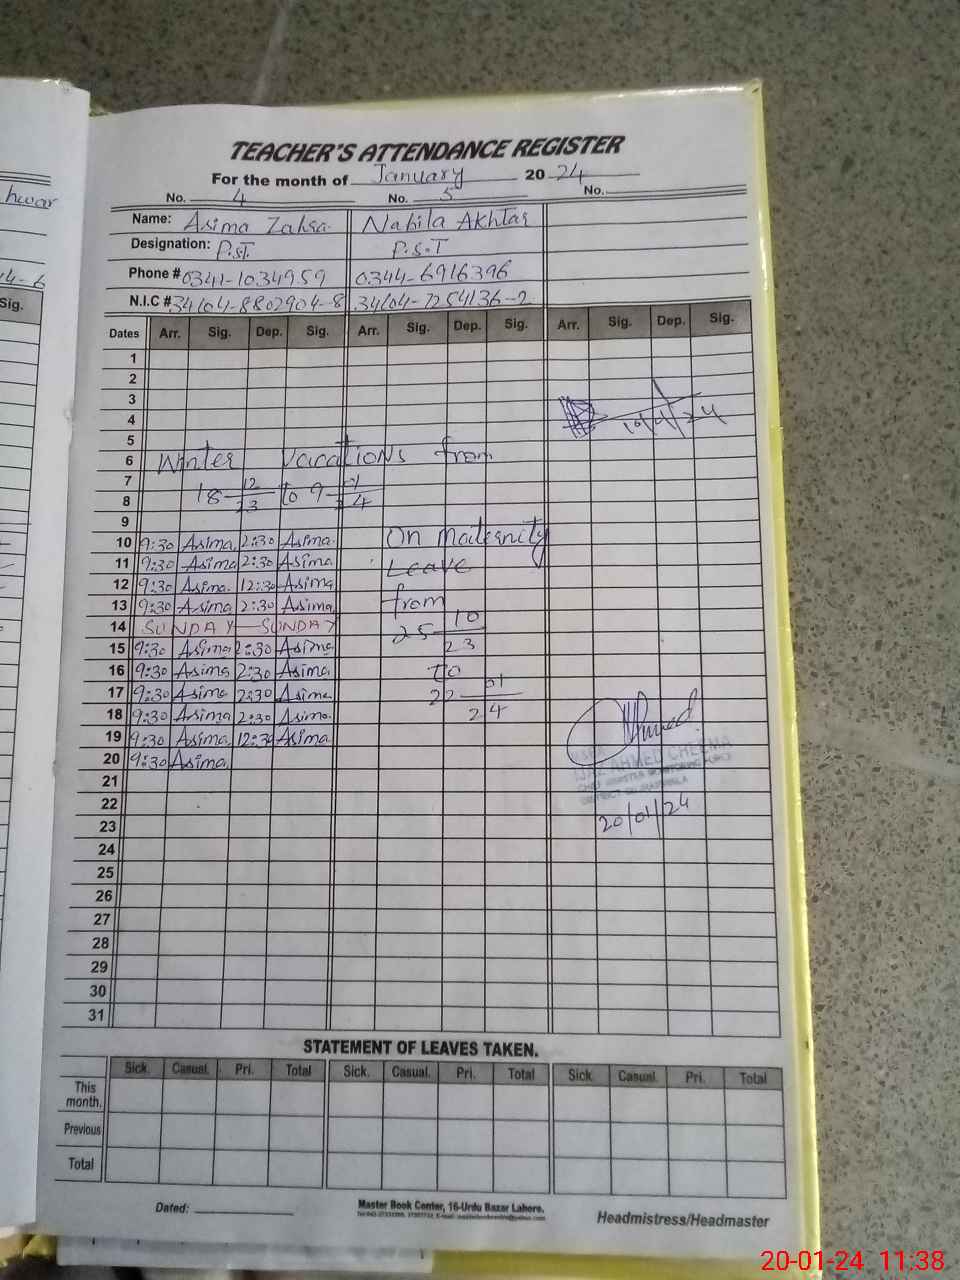 TEACHER'S ATTENDANCE REGISTER
For the month of January 2024
No. 4 No. 5 No.
Name: Asima Zahra Nabila Akhtar
Designation: P.S.T. P.S.T
Phone # 0341-1034959 0344-6916396
N.I.C # 34104-8802904-8 34104-7254136-2
Dates Arr. Sig. Dep. Sig. Arr. Sig. Dep. Sig. Arr. Sig. Dep. Sig.
1
2
3
4 10/01/24
5
6 Winter vacations from
7
8 18-12/23 to 9-1/24
9
10 9:30 Asima 2:30 Asima On Maternity
11 9:30 Asima 2:30 Asima Leave
12 9:30 Asima 12:30 Asima
13 9:30 Asima 2:30 Asima from
14 SUNDAY — SUNDAY 25-10/23
15 9:30 Asima 2:30 Asima
16 9:30 Asima 2:30 Asima To
17 9:30 Asima 2:30 Asima 22-01/24
18 9:30 Asima 2:30 Asima
19 9:30 Asima 12:30 Asima
20 9:30 Asima
Ahmed
IJAZ AHMED CHEEMA
CHIEF MINISTER MONITORING FORCE
DISTRICT GUJRANWALA
21
22
23 20/01/24
24
25
26
27
28
29
30
31
STATEMENT OF LEAVES TAKEN.
Sick. Casual. Pri. Total Sick. Casual. Pri. Total Sick. Casual. Pri. Total
This
month.
Previous
Total
Dated:
Master Book Center, 16-Urdu Bazar Lahore.
Headmistress/Headmaster
hwar
14-6
Sig.
20-01-24 11:38